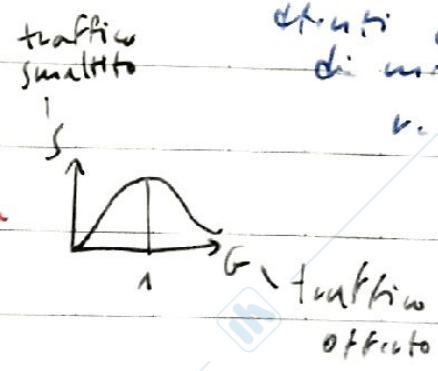 traffico
smaltito
S
di
1
G
traffico
offerto